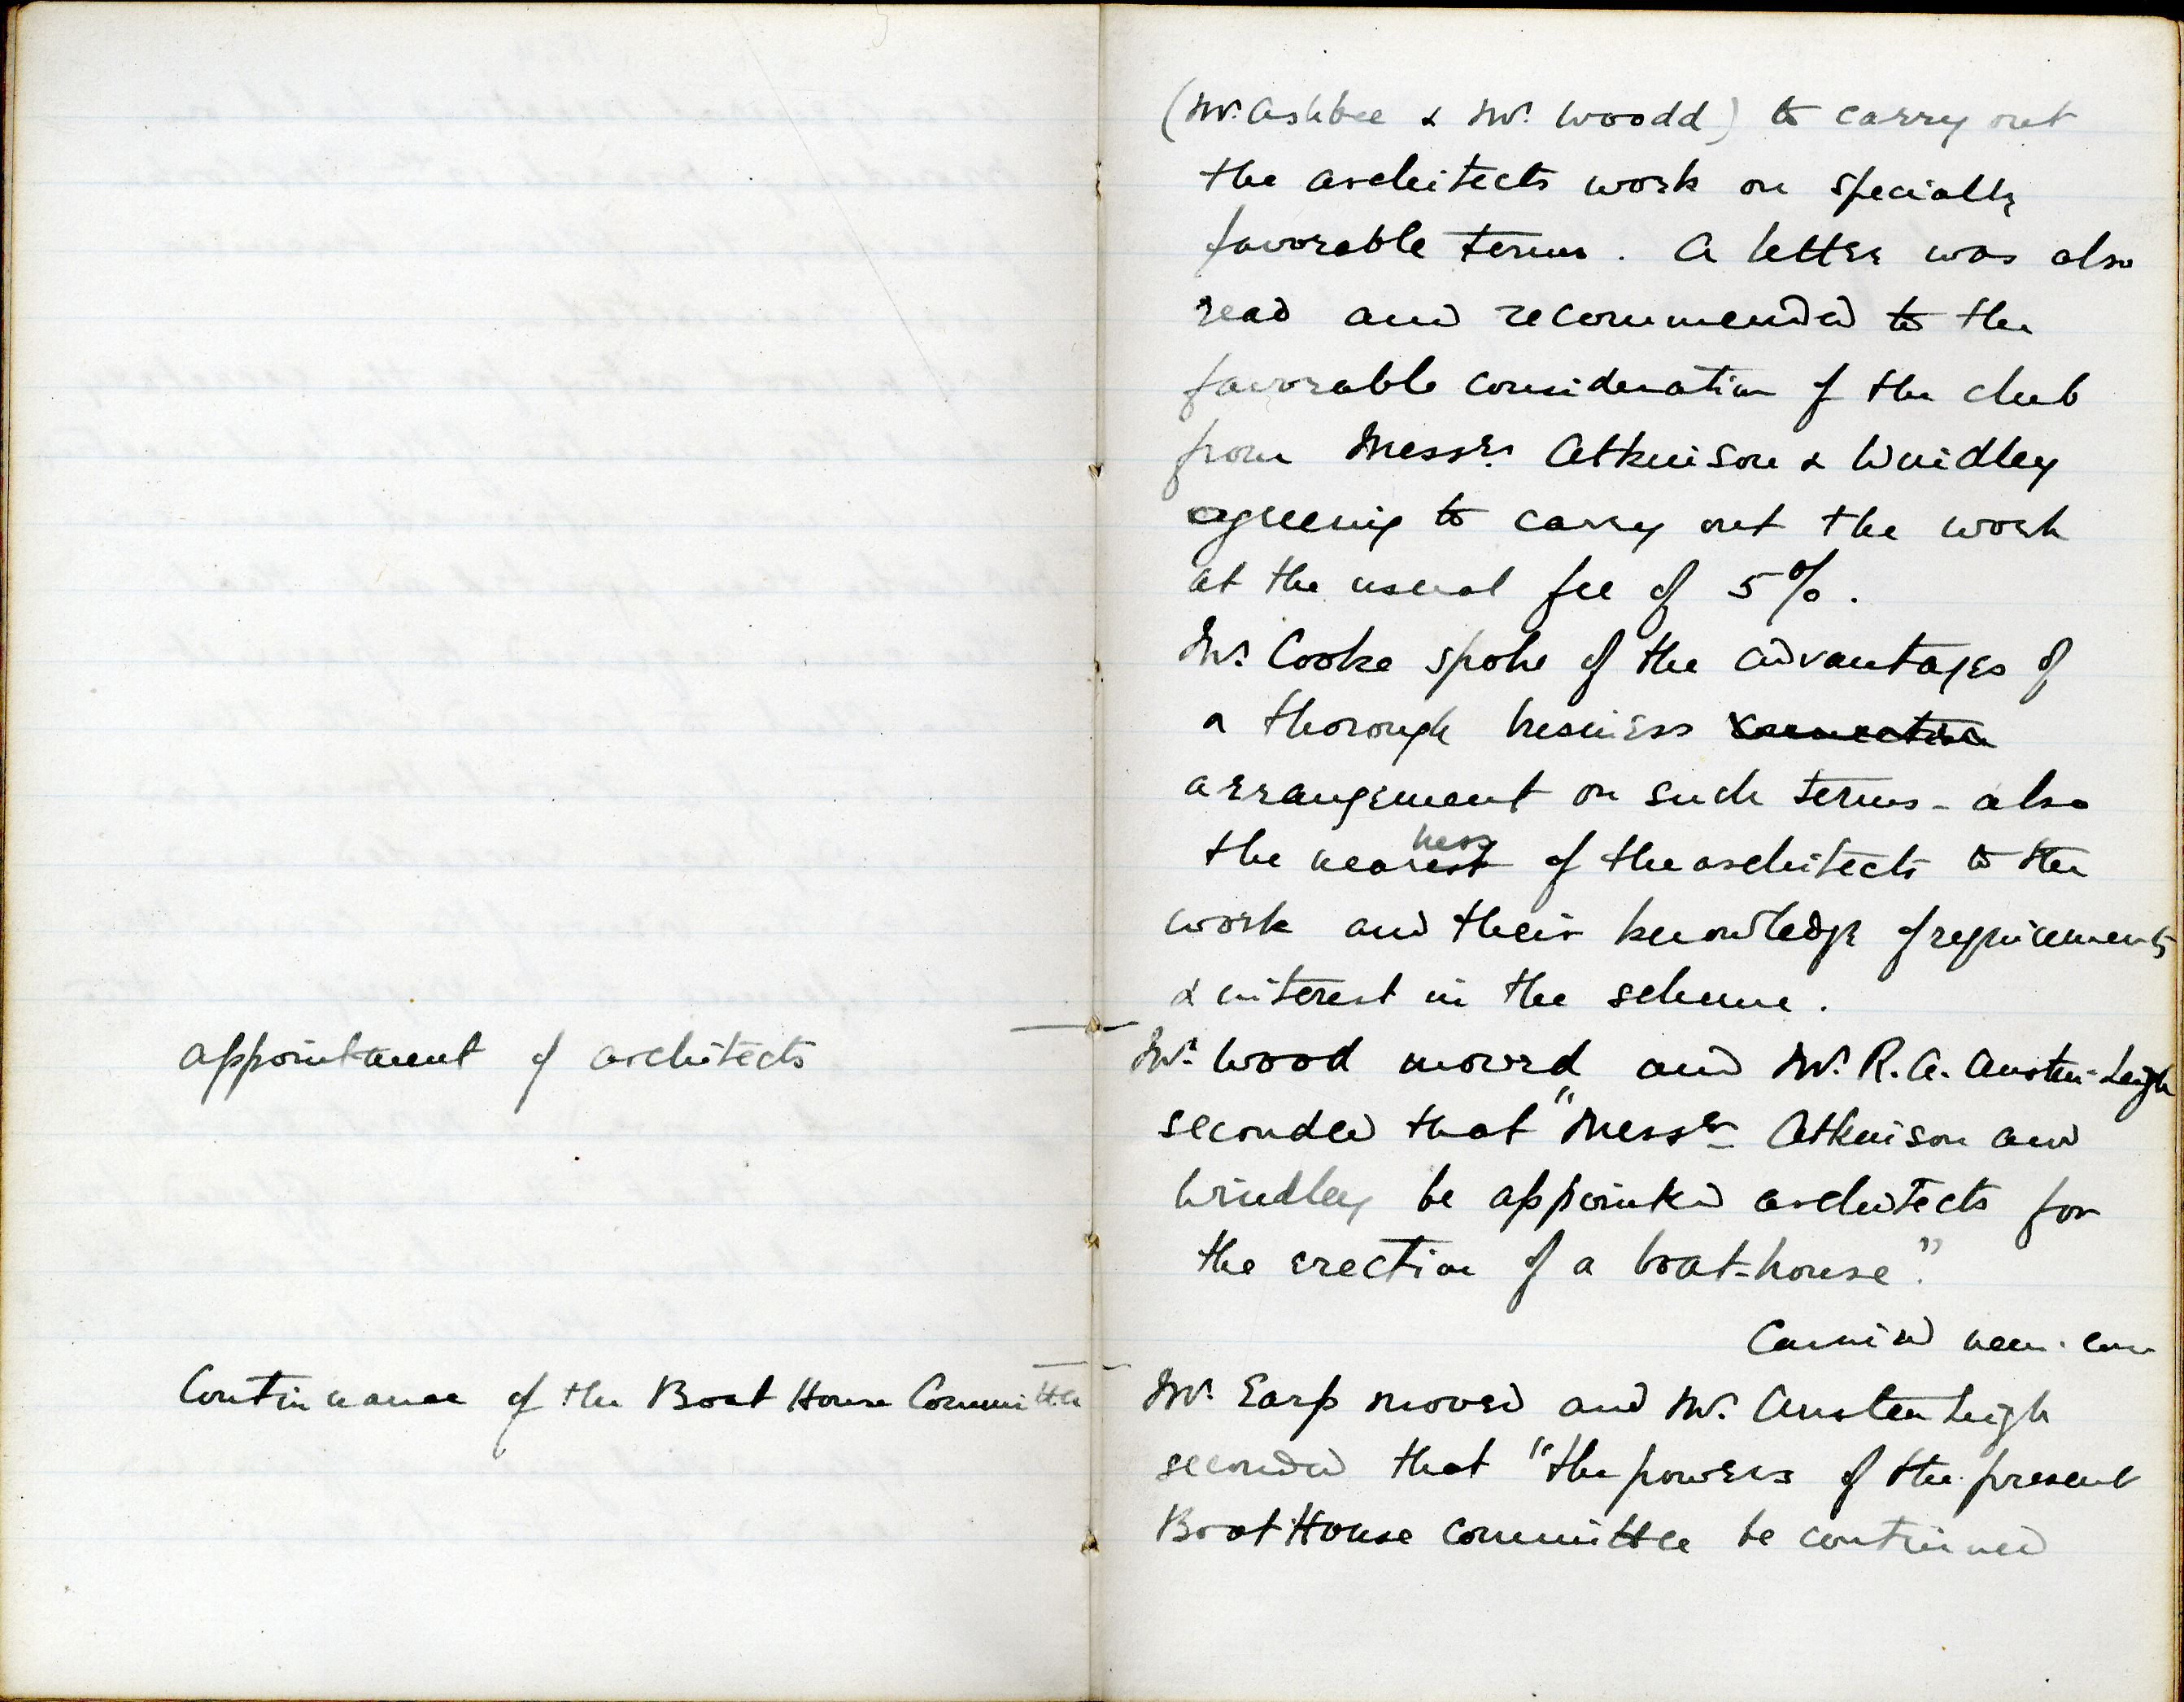 (Mr. Ashbee & Mr. Woodd) to carry out
the architects work on specially
favorable terms. A letter was also
read and recommended to the
favorable consideration of the club
from Messrs. Atkinson & Windley
agreeing to carry out the work
at the usual fee of 5%.
Mr. Cooke spoke of the advantages of
a thorough business connection
arrangement on such terms - also
ness
the nearest of the architects to the
work and their knowledge of requirements
& interest in the scheme.
appointment of architects
Mr. Wood moved and Mr. R. A. Austen-Leigh
seconded that "Messrs Atkinson and
Windley be appointed architects for
the erection of a boat-house".
Carried nem. con
Continuance of the Boat House Committee
Mr. Earp moved and Mr. Austen Leigh
seconded that "the powers of the present
Boat House Committee be continued